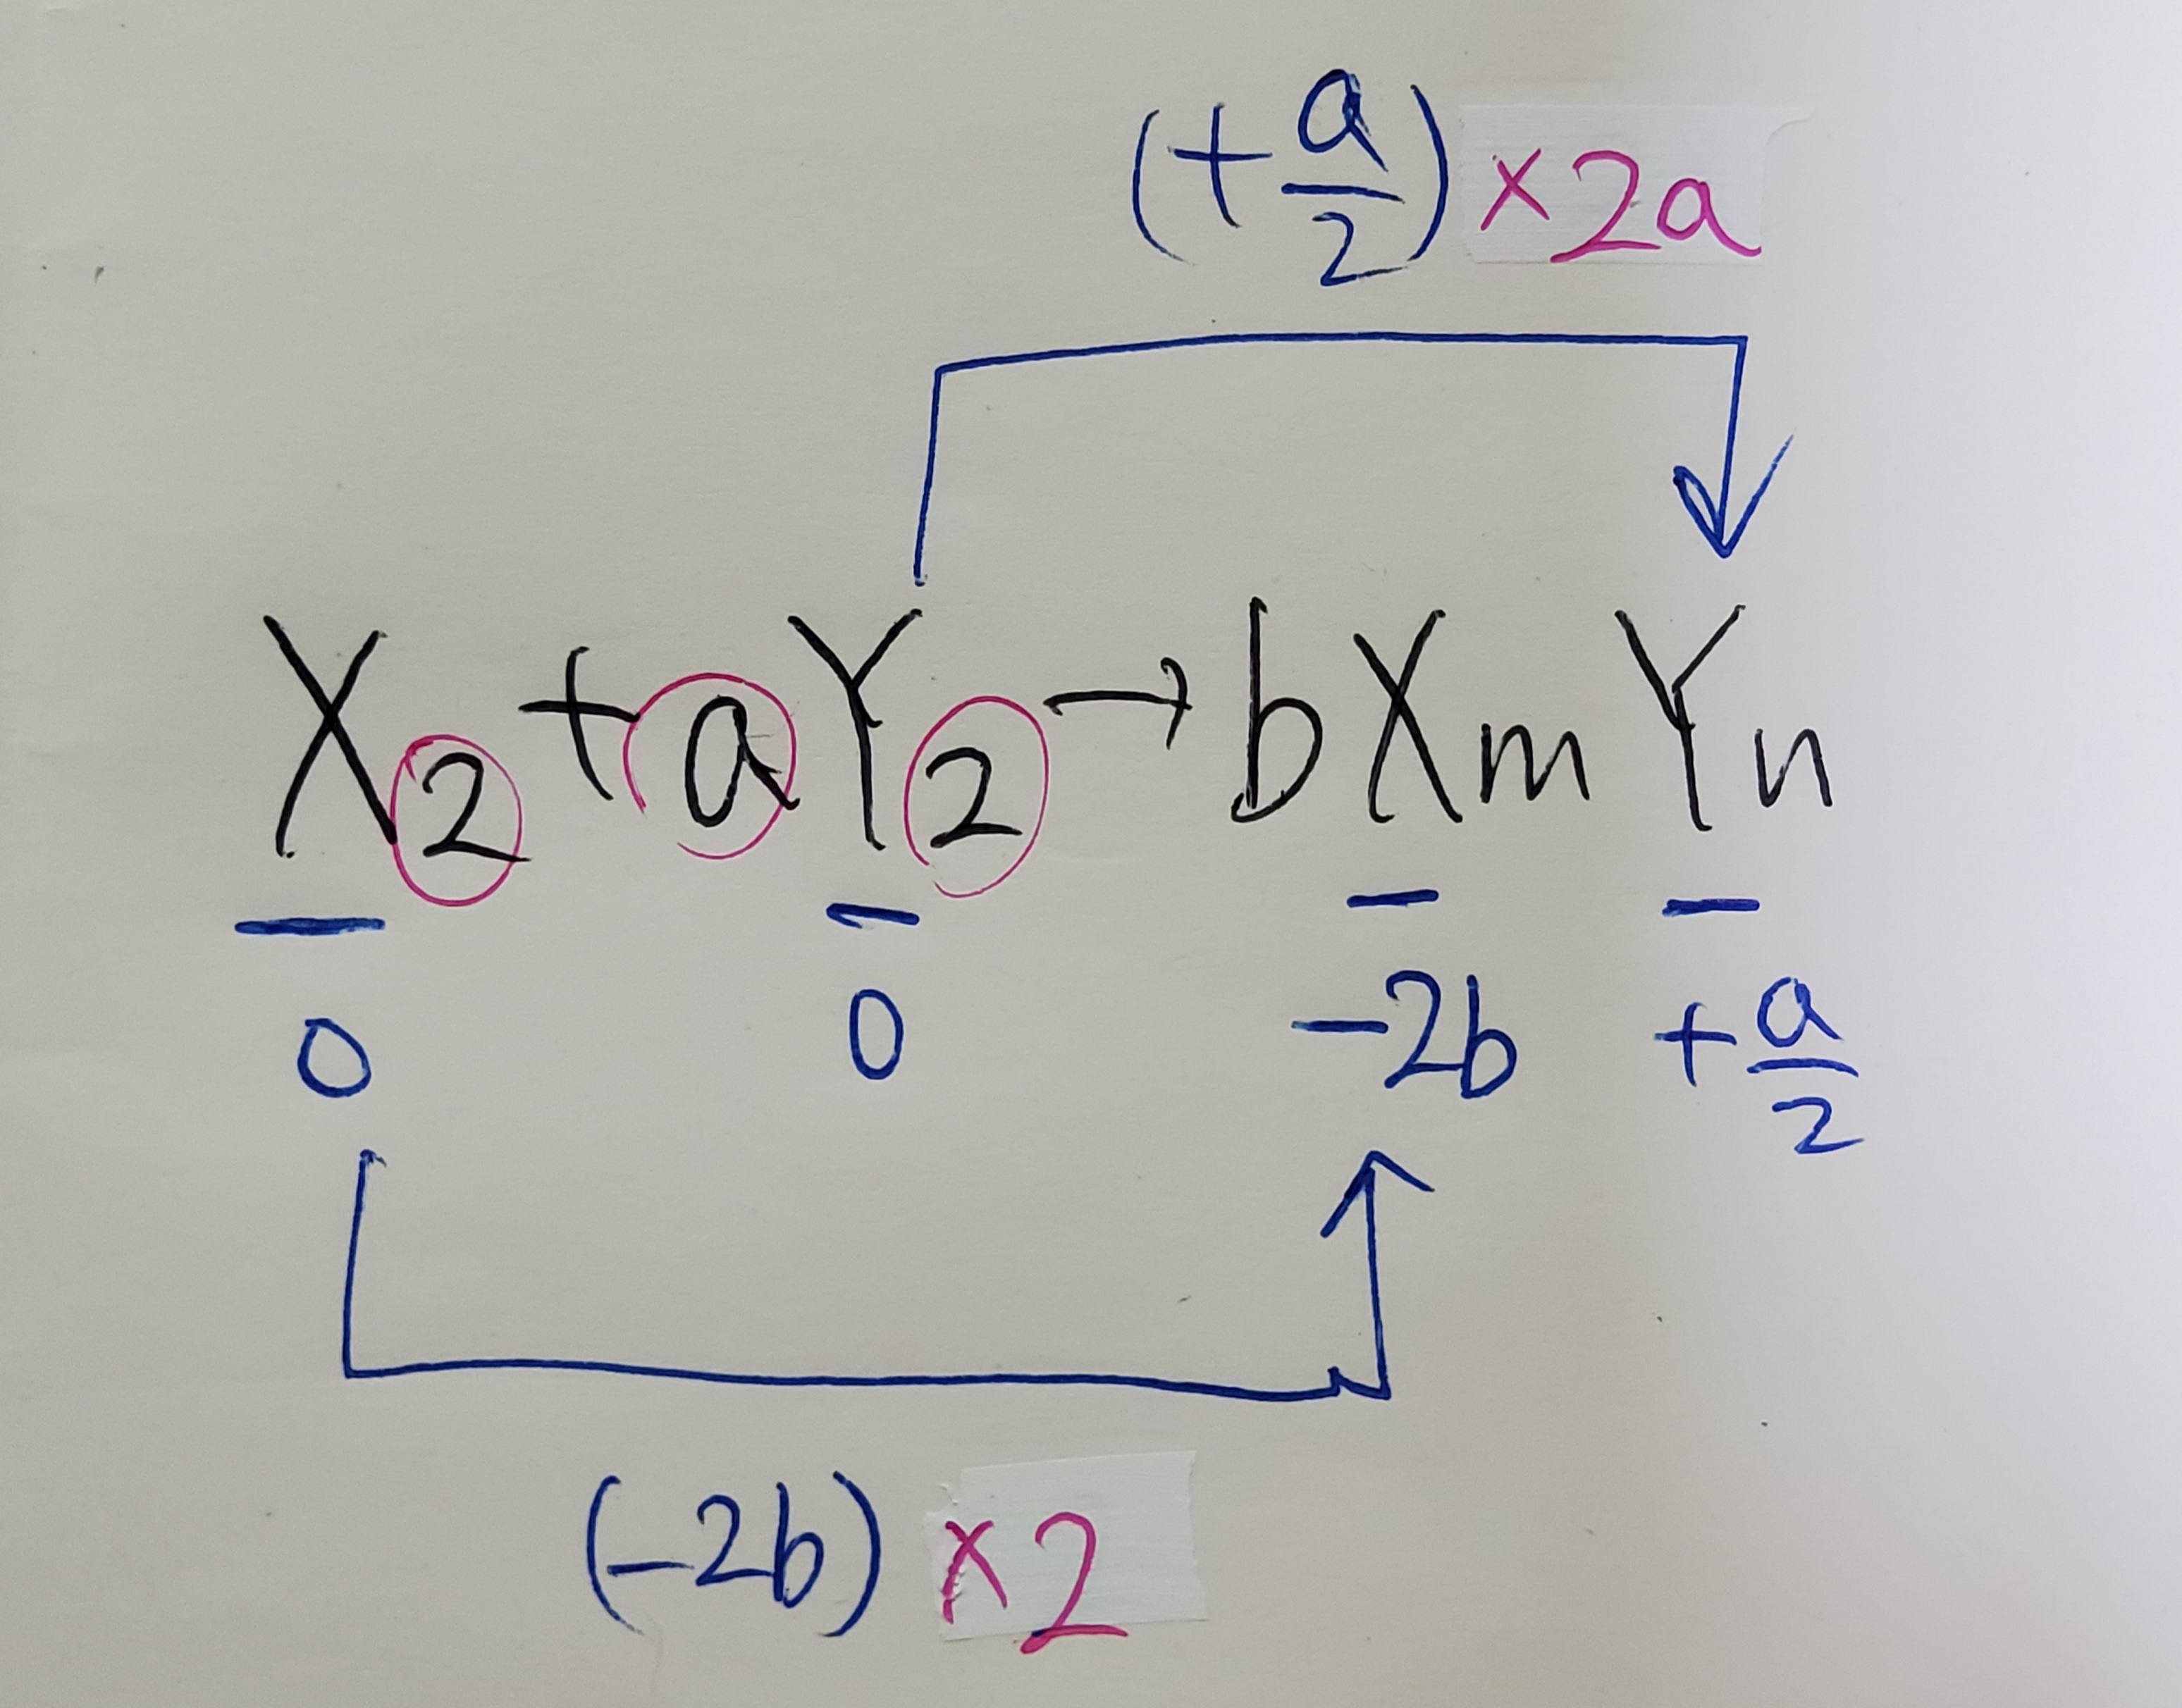 (+a/2) ×2a
X₂ + aY₂ → bXmYn
0 0 -2b +a/2
(-2b) ×2